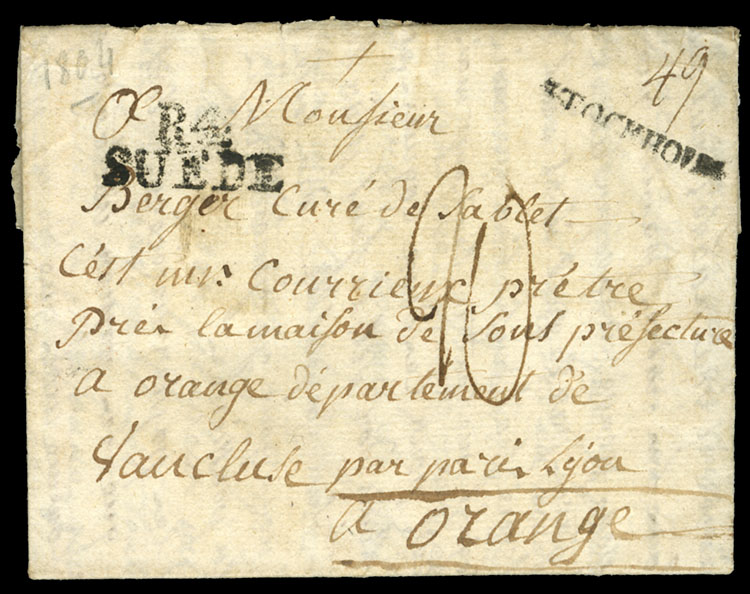 1804
49
STOCKHOLM
A Monsieur
R.4.
SUÈDE
Berger Curé de Sablet
C'est mr. Courrieux prêtre
Près la maison de Sous préfecture
a orange département de
Vaucluse par paris Lyon
a orange